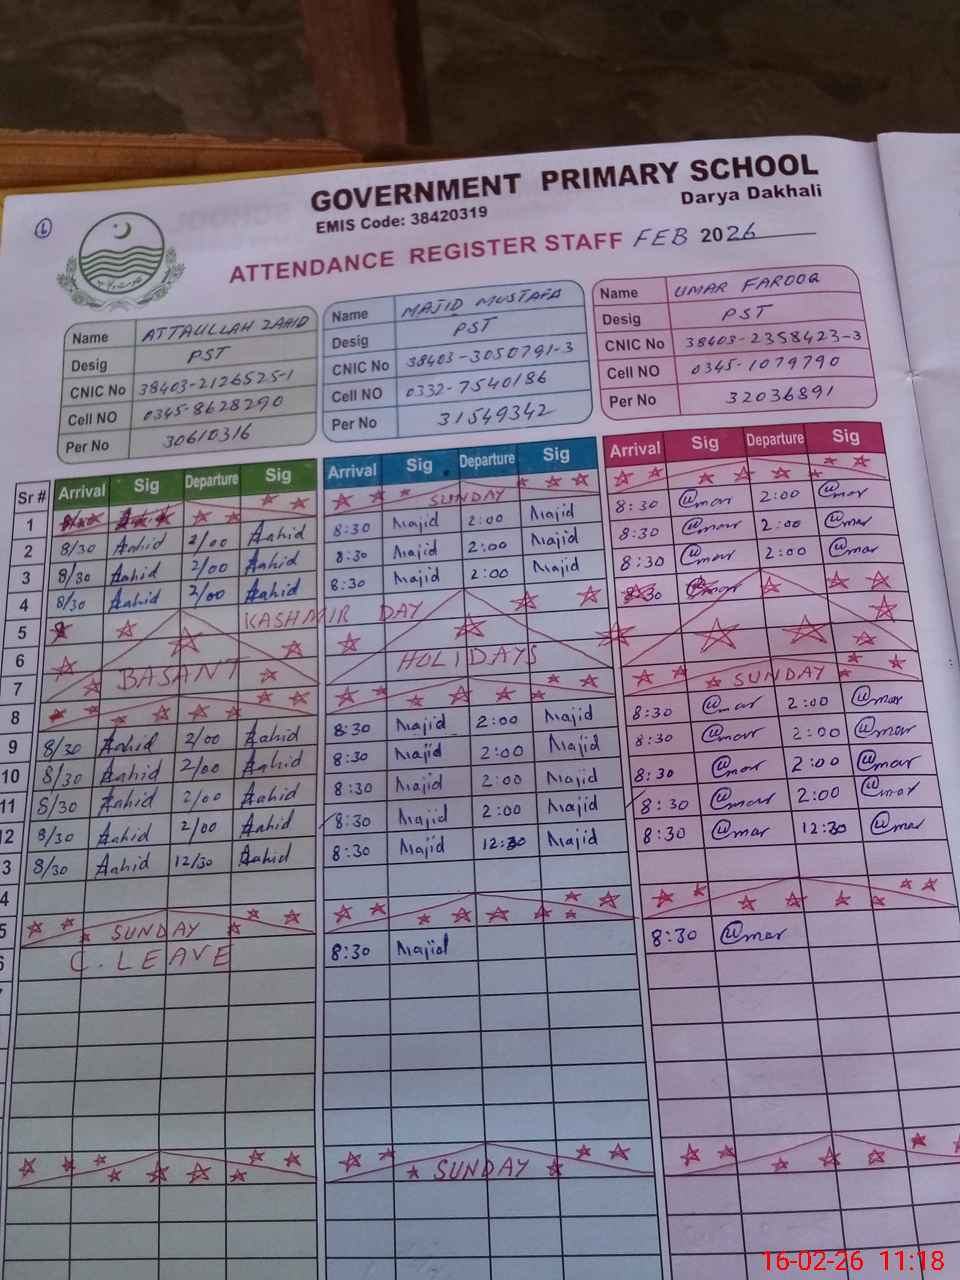 6
GOVERNMENT PRIMARY SCHOOL
EMIS Code: 38420319 Darya Dakhali
ATTENDANCE REGISTER STAFF FEB 2026
Name ATTAULLAH ZAHID Name MAJID MUSTAFA Name UMAR FAROOQ
Desig PST Desig PST Desig PST
CNIC No 38403-2126525-1 CNIC No 38403-3050791-3 CNIC No 38403-2358423-3
Cell NO 0345-8628290 Cell NO 0332-7540186 Cell NO 0345-1079790
Per No 30610316 Per No 31549342 Per No 32036891
Sr # Arrival Sig Departure Sig Arrival Sig Departure Sig Arrival Sig Departure Sig
1 SUNDAY
2 8/30 Aahid 2/00 Aahid 8:30 Majid 2:00 Majid 8:30 @mar 2:00 @mar
3 8/30 Aahid 2/00 Aahid 8:30 Majid 2:00 Majid 8:30 @mar 2:00 @mar
4 8/30 Aahid 2/00 Aahid 8:30 Majid 2:00 Majid 8:30 @mar 2:00 @mar
5 KASHMIR DAY 8:30 @mar
6
7 BASANT HOLIDAYS
8 SUNDAY
9 8/30 Aahid 2/00 Aahid 8:30 Majid 2:00 Majid 8:30 @mar 2:00 @mar
10 8/30 Aahid 2/00 Aahid 8:30 Majid 2:00 Majid 8:30 @mar 2:00 @mar
11 8/30 Aahid 2/00 Aahid 8:30 Majid 2:00 Majid 8:30 @mar 2:00 @mar
12 8/30 Aahid 2/00 Aahid 8:30 Majid 2:00 Majid 8:30 @mar 2:00 @mar
3 8/30 Aahid 12/30 Aahid 8:30 Majid 12:30 Majid 8:30 @mar 12:30 @mar
4
5 SUNDAY
6 C. LEAVE 8:30 Majid 8:30 @mar
SUNDAY
16-02-26 11:18